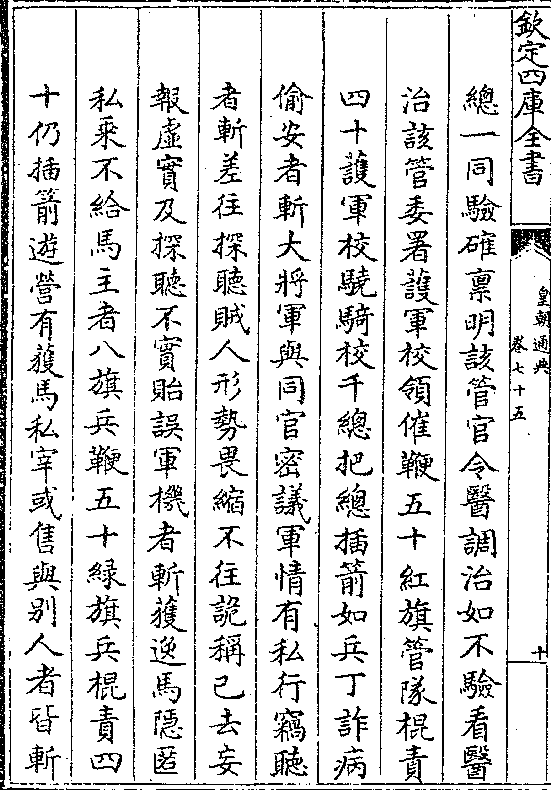 欽定四庫全書
皇朝通典
卷七十五
十
總一同驗確禀明該管官令醫調治如不驗看醫
治該管委署護軍校領催鞭五十紅旗管隊棍責
四十護軍校驍騎校千總把總插箭如兵丁詐病
偷安者斬大將軍與同官密議軍情有私行竊聽
者斬差往探聽賊人形勢畏縮不往詭稱已去妄
報虛實及探聽不實貽誤軍機者斬獲逸馬隱匿
私乘不給馬主者八旗兵鞭五十緑旗兵棍責四
十仍插箭遊營有獲馬私宰或售與别人者皆斬